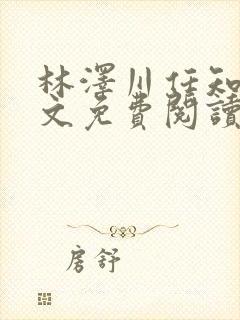 林澤川任知
文免費閱讀
房舒